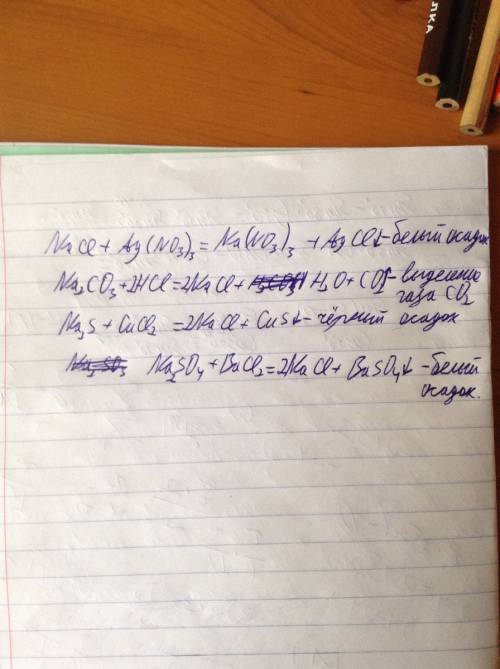 ЛКА
NaCl + Ag(NO3)3 = Na(NO3)3 + AgCl↓ - белый осадок
Na2CO3 + 2HCl = 2NaCl + H2O + CO2↑ - выделение
газа CO2
Na2S + CuCl2 = 2NaCl + CuS↓ - чёрный осадок
Na2SO4 + BaCl2 = 2NaCl + BaSO4↓ - белый
осадок.